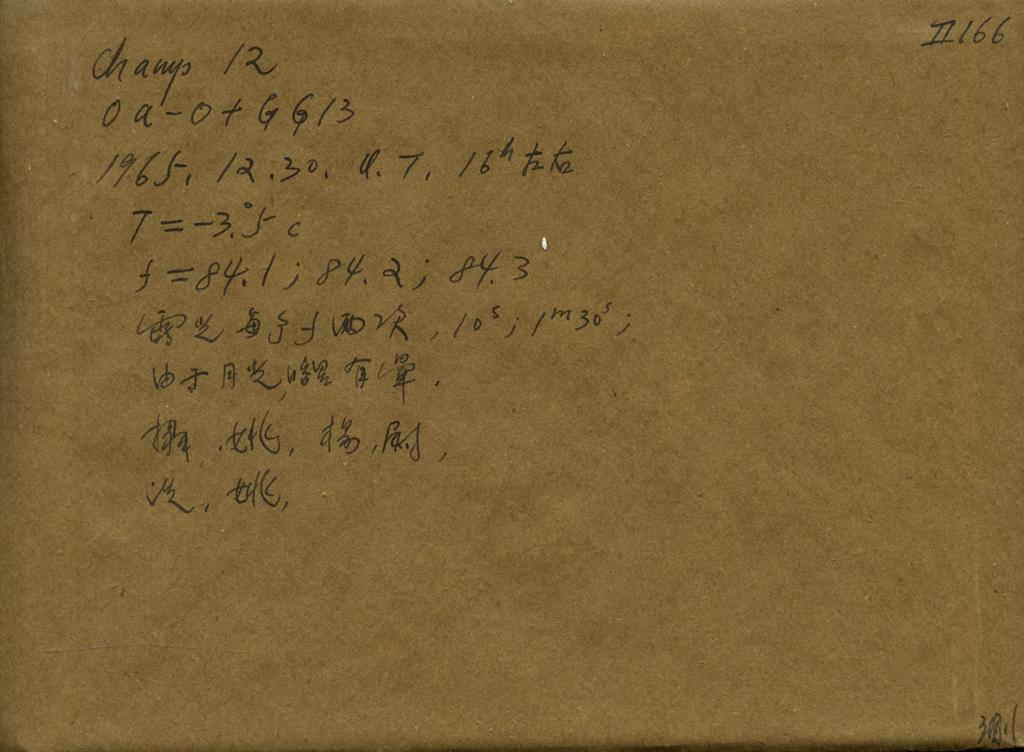 II166
Champ 12
0a-0+GG13
1965. 12.30. U.T. 16h左右
T=-3.°5 c
f=84.1; 84.2; 84.3
露光每个f两次, 10s; 1m30s;
由于月光,略有晕.
摄.姚,杨,尉,
洗.姚,